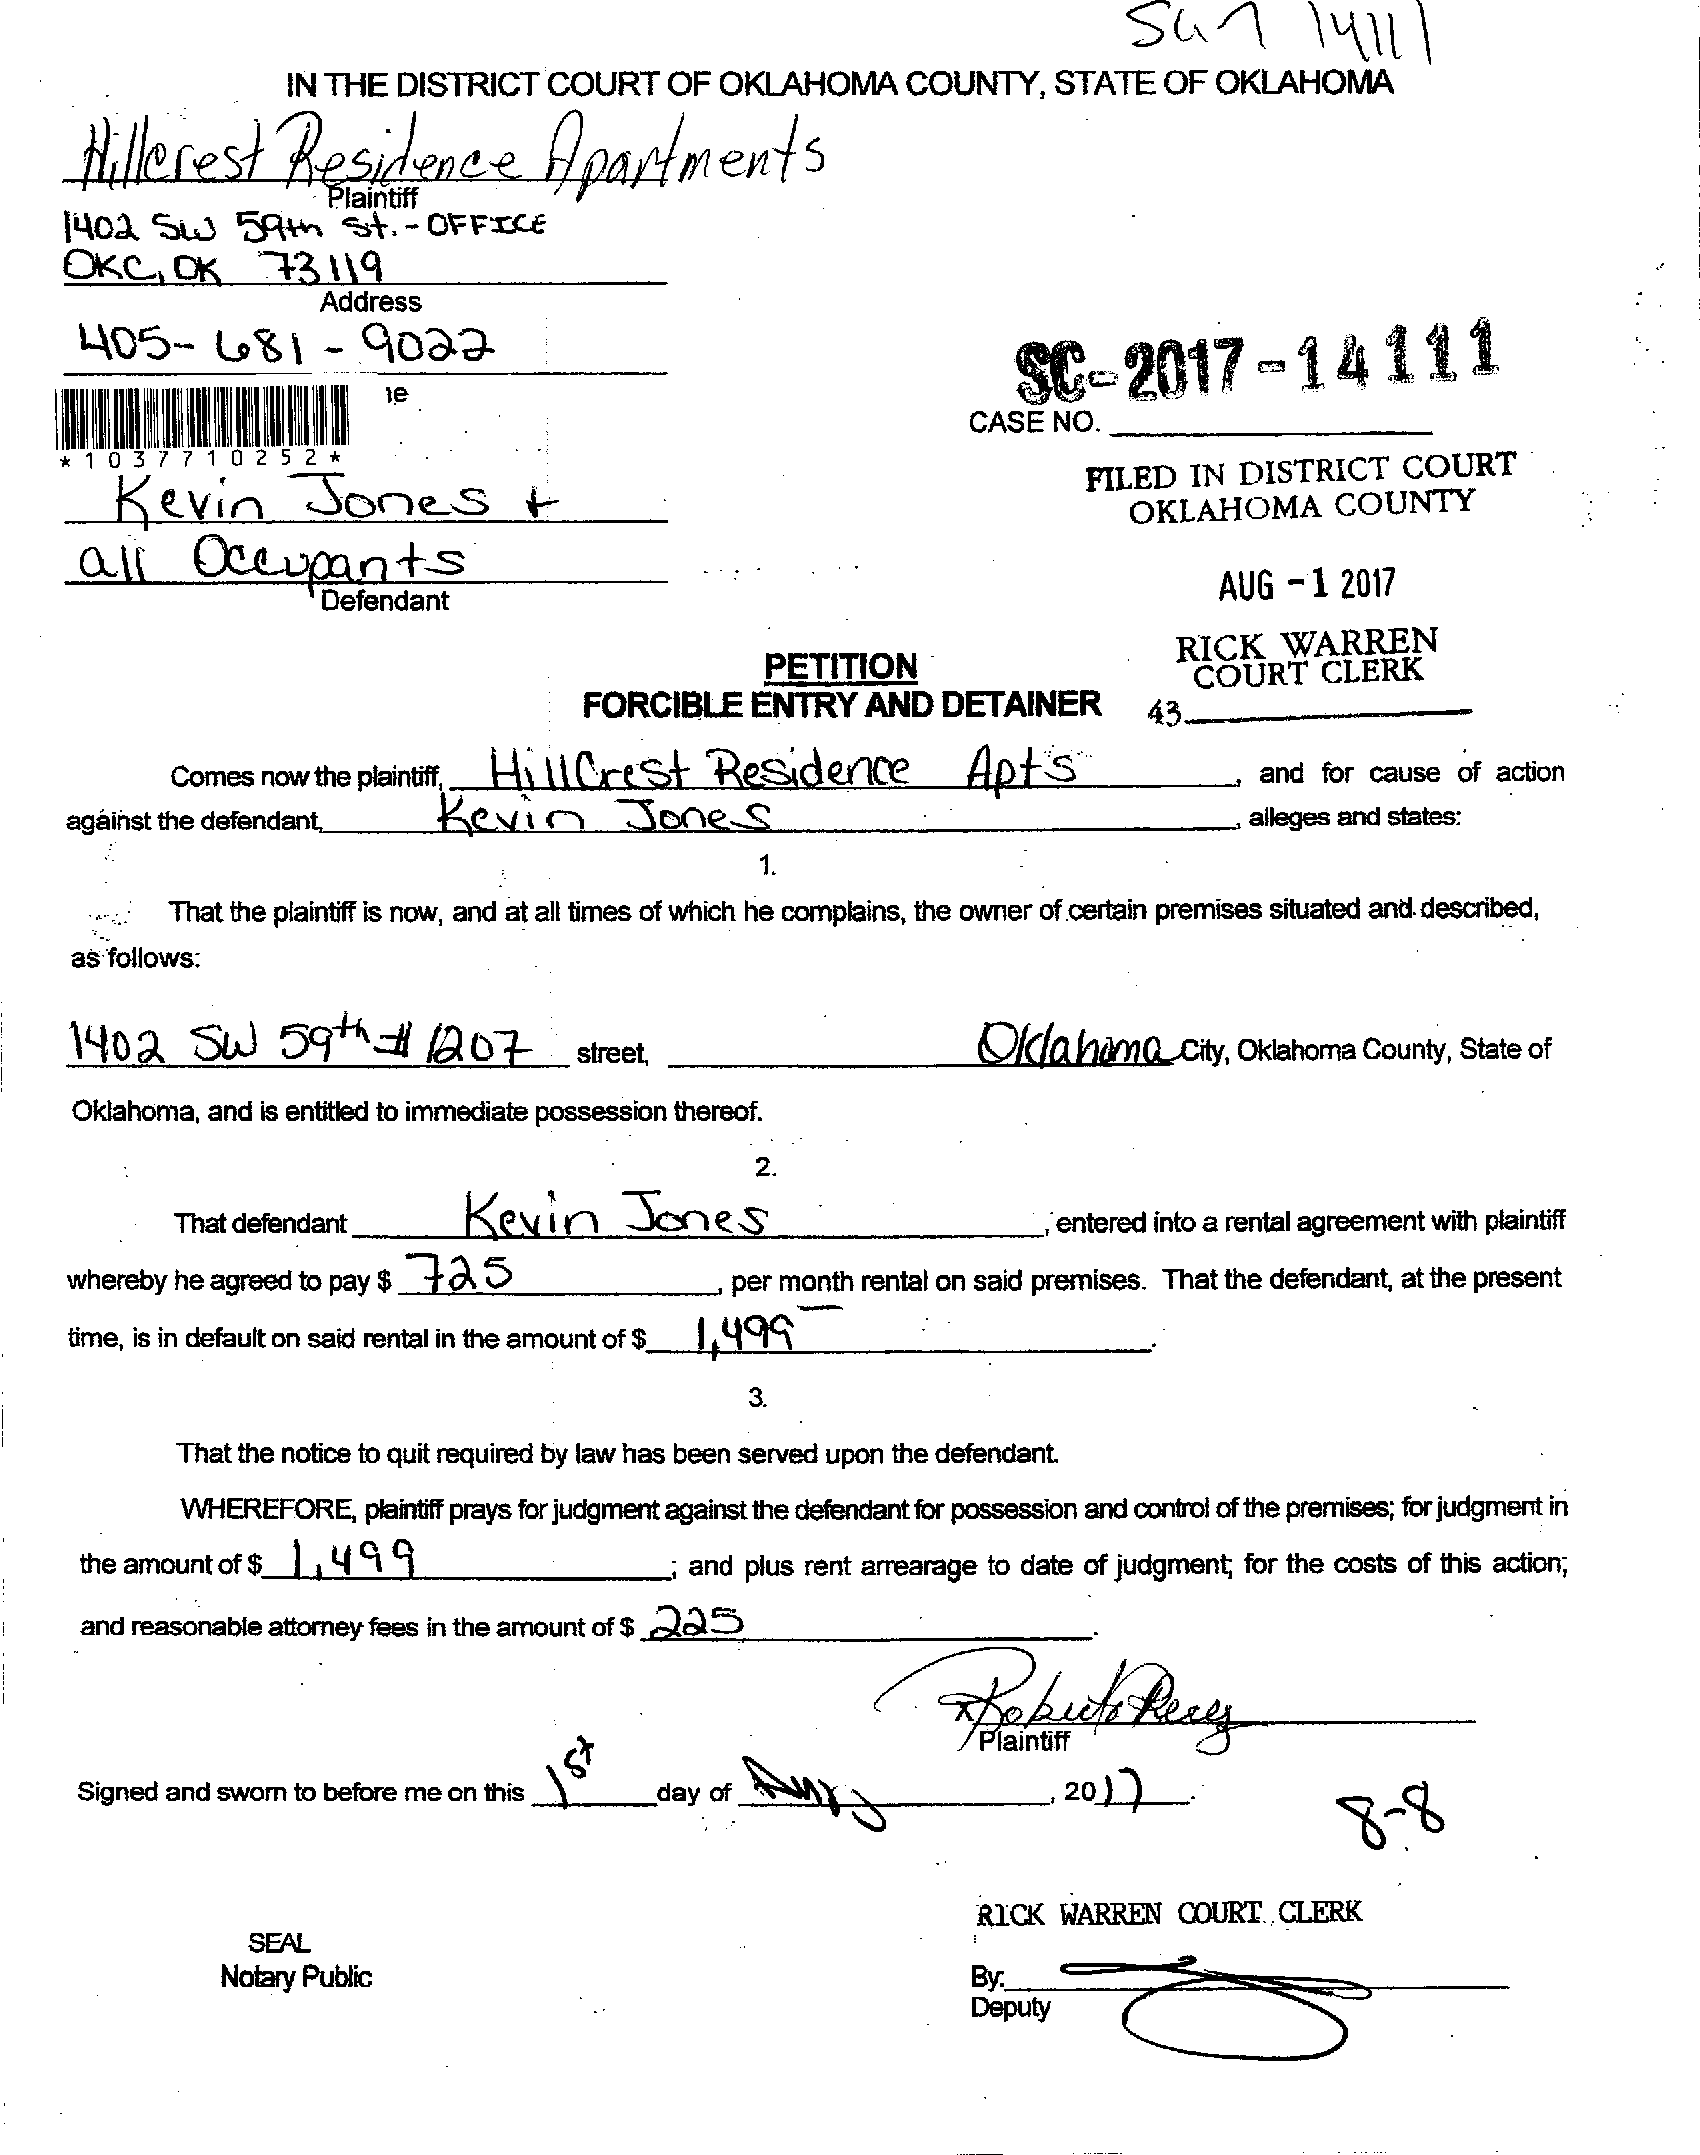 IN THE DISTRICT COURT OF OKLAHOMA COUNTY, STATE OF OKLAHOMA
Hillcrest Residence Apartments
Plaintiff
1402 SW 59th St. - OFFICE
OKC, OK 73119
Address
405-681-9022
SC-2017-14111
CASE NO.
*1037710252*
FILED IN DISTRICT COURT
OKLAHOMA COUNTY
Kevin Jones +
all Occupants
Defendant
AUG -1 2017
RICK WARREN
COURT CLERK
43
PETITION
FORCIBLE ENTRY AND DETAINER
Comes now the plaintiff, HillCrest Residence Apt's, and for cause of action
against the defendant, Kevin Jones, alleges and states:
1.
That the plaintiff is now, and at all times of which he complains, the owner of certain premises situated and described,
as follows:
1402 SW 59th # 1207 street, Oklahoma City, Oklahoma County, State of
Oklahoma, and is entitled to immediate possession thereof.
2.
That defendant Kevin Jones, entered into a rental agreement with plaintiff
whereby he agreed to pay $ 725, per month rental on said premises. That the defendant, at the present
time, is in default on said rental in the amount of $ 1,499.
3.
That the notice to quit required by law has been served upon the defendant.
WHEREFORE, plaintiff prays for judgment against the defendant for possession and control of the premises; for judgment in
the amount of $ 1,499; and plus rent arrearage to date of judgment; for the costs of this action;
and reasonable attorney fees in the amount of $ 225.
Plaintiff
Signed and sworn to before me on this 1st day of Aug, 2017.
8-8
RICK WARREN COURT CLERK
SEAL
Notary Public
By:
Deputy